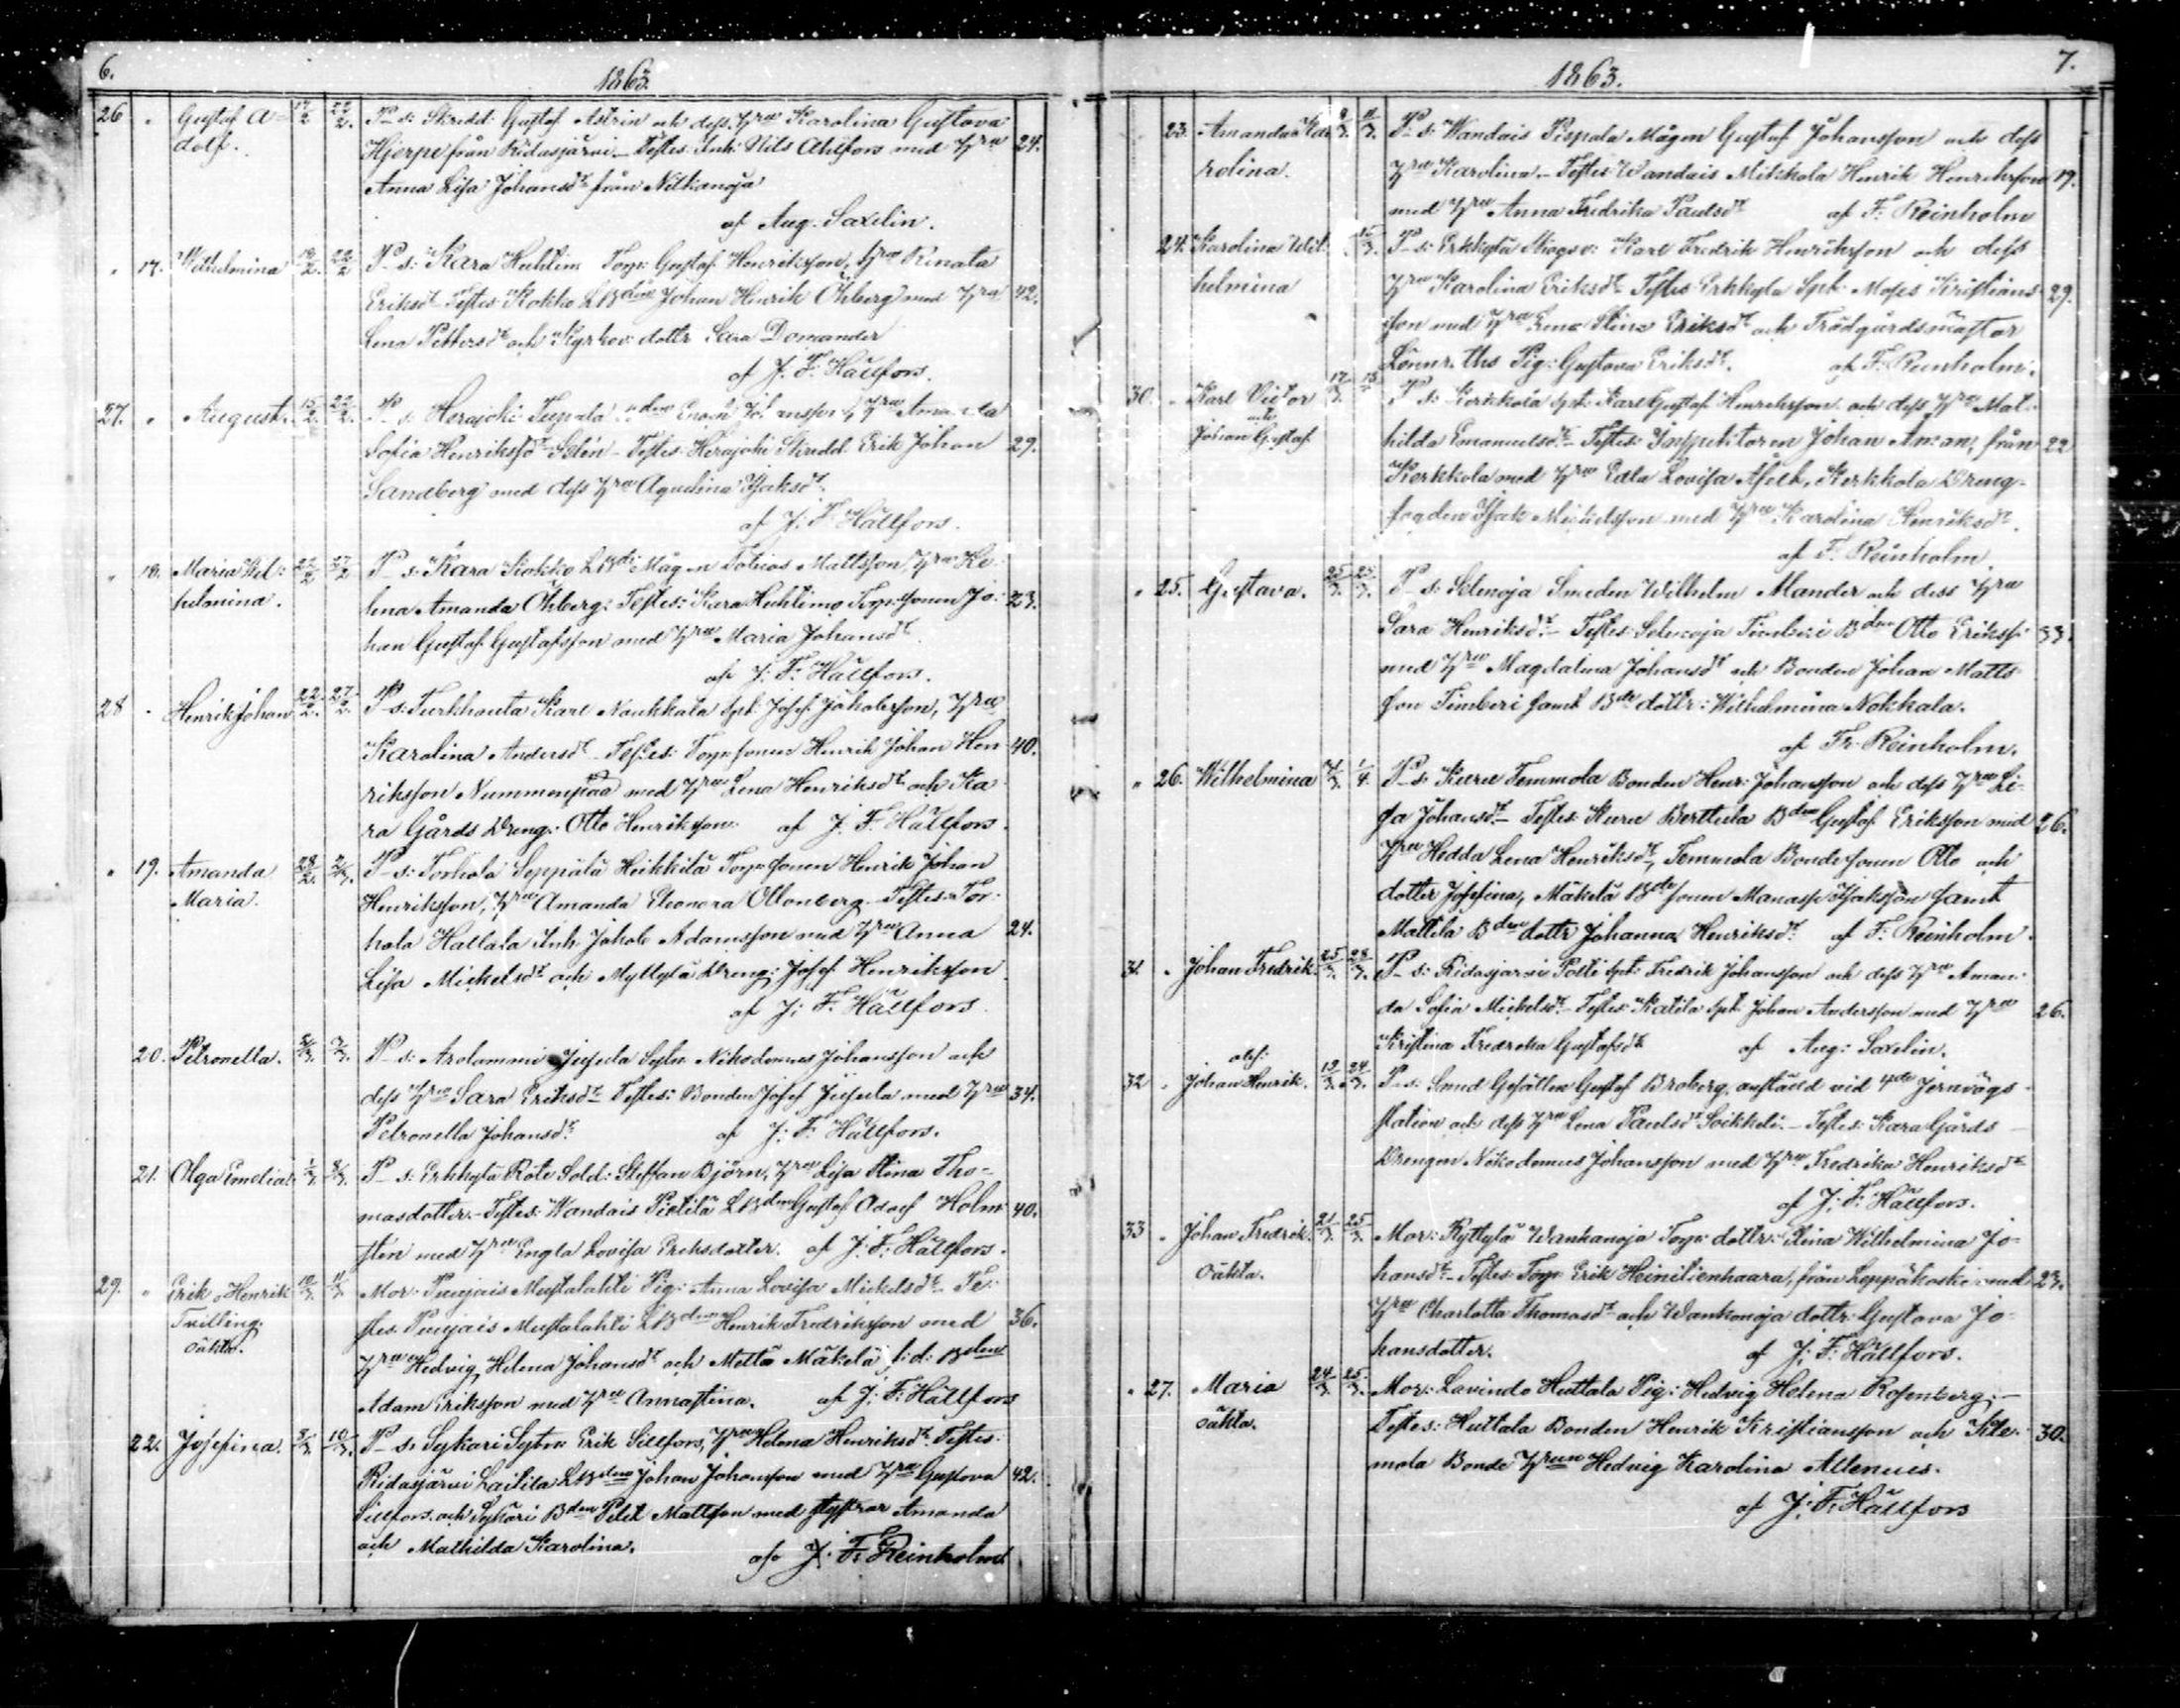 6.
1863.
26 " Gustaf A= 17/2 22/2. P. s: Skredd: Gustaf Astrin och dess Hru Karolina Gustava
dolf. Hjerpe från Ridasjärvi. Testes: Inh: Nils Ahlfors med Hru 24.
Anna Lisa Johansdr från Nilkanoja
af Aug. Saxelin.
" 17. Wilhelmina 19/2. 22/2 P. s: Kara Huhtimo Torp: Gustaf Henriksson, Hru Renata
Eriksdr Testes Kokko LBden Johan Henrik Öhberg med Hru 42.
Lena Pettersdr och Kyrkov: dottr Sara Domander
af J. F. Hällfors.
27. " August. 15/2. 22/2. P. s. Herajoki Johansson, Hru Amanda
Sofia Henriksdr Selén - Testes Herajoki Skredd Erik Johan 29.
Sandberg med dess Hru Aqvilina Isaksdr.
af J. F. Hällfors.
" 18. Maria Wil= 27/2 P. s. Kara Kokko LBds Mågen Tobias Mattsson, Hru He
helmina. lena Amanda Öhberg: Testes: Kara Huhtimo Torp: sonen Jo= 23.
han Gustaf Gustafsson med Hru Maria Johansdr
af J. F. Hällfors.
28 " Henrik Johan 22/2. 27/2. P. s. Turkhauta Karl Naukkala Spt. Josef Jakobsson, Hru
Karolina Andersdr Testes: Torp: sonen Henrik Johan Hen 40.
riksson Nummenpää med Hru Lena Henriksdr och Ka
ra Gårds Dreng: Otto Henriksson. af J. F. Hällfors.
" 19. Amanda 28/2. 2/3. P. s: Torhola Seppälä Heikkilä Torp: sonen Henrik Johan
Maria. Henriksson, Hru Amanda Eleonora Ollonberg. Testes: Tor=
hola Hallala Inh: Jakob Adamsson med Hru Anna 24.
Lisa Mickelsdr och Myllylä Dreng: Josef Henriksson
af J: F. Hällfors.
20. Petronella. 7/3. P. s: Arolammi Jusela Sytn Nikodemus Johansson och
dess Hru Sara Eriksdr Testes: Bonden Josef Jusula med Hru 34.
Petronella Johansdr. af J: F. Hällfors.
21. Olga Emelia. 1/3. 8/3. P. s: Erkkylä Rote Sold: Steffan Björn, Hru Lisa Stina Tho=
masdotter. Testes: Wandais Pietilä LBden Gustaf Adolf Holm 40.
stén med Hru Engla Lovisa Eriksdotter. af J: F: Hällfors.
29. " Erik Henrik 10/3. 11/3 Mor: Punjais Mustalahti Pig: Anna Lovisa Mickelsdr Te=
Tvilling. stes Punjais Mustalahti LBden Henrik Fredriksson med 36.
oäkta. Hru Hedvig Helena Johansdr och Mattä Mäkelä f: d: Bden
Adam Eriksson med Hru Annastina. af J: F: Hällfors
22. Josefina. 8/3. 10/3. P. s. Sykari Sytn: Erik Sillfors, Hru Helena Henriksdr. Testes:
Ridasjärvi Laitila LBden Johan Johansson med Hru Gustava 42.
Sillfors och Sykäri Bden Petter Mattsson med systrar Amanda
och Mathilda Karolina. af J: F. Reinholm
7.
1863.
23. Amanda Ka= 9/3. 11/3. P. s: Wandais Pispala Mågen Gustaf Johansson och dess
rolina. Hru Karolina. Testes: Wandais Mikkola Henrik Henriksson 19.
med Hru Anna Fredrika Paulsdr af F. Reinholm
24. Karolina Wil= 15/3. P. s: Erkkylä Skogsv: Karl Fredrik Henriksson och dess
helmina Hru Karolina Eriksdr Testes Erkkyla Spt. Moses Kristians 29.
son med Hru Lena Stina Eriksdr och Trädgårdsmästar
Pig: Gustava Eriksdr. af F: Reinholm.
30. " Karl Victor 12/3. 18/3 P. s: Kerkkola Spt. Karl Gustaf Henriksson och dess Hru Mat
och
Johan Gustaf hilda Emanuelsdr Testes: Inspektoren Johan Aman, från 22
Kerkkola med Hru Edla Lovisa Kerkkola Dreng=
fogden Isak Mickelsson med Hru Karolina Henriksdr.
af F. Reinholm
" 25. Gustava. 25/3. 25/3. P. s. Selenoja Smeden Wilhelm Mander och dess Hru
Sara Henriksdr Testes: Selenoja Timberi Bden Otto Eriksson 33.
med Hru Magdalena Johansdr och Bonden Johan Matts
son Timberi samt Bde dottr: Wilhelmina Nokkala.
af Fr: Reinholm.
" 26. Wilhelmina 1/4. P. s. Kuru Temmola Bonden Henr: Johansson och dess Hru Li=
sa Johansdr Testes Kuru Berttula Bden Gustaf Eriksson med 26.
Hru Hedda Lena Henriksdr, Temmola Bondesonen Otto och
dotter Josefina, Mäkelä Bde sonen Manasse Isaksson samt
Mattila Bden dottr Johanna Henriksdr af F. Reinholm.
31. " Johan Fredrik. 25/3. 28/3. P. s: Ridasjarvi Polli Spt. Fredrik Johansson och dess Hru Aman=
da Sofia Mickelsdr Testes: Katila Spt. Johan Andersson med Hru 26.
Kristina Fredrika Gustafsdr af Aug: Saxelin.
32 " Johan Henrik. 19/3. 24/3. P. s. Smed Gesällen Gustaf Broberg, anställd vid 4de Jernvägs
station och dess Hru Lena Paulsdr Soikkeli. Testes: Kara Gårds
Drengen Nikodemus Johansson med Hru Fredrika Henriksdr
af J: F. Hällfors.
33 " Johan Fredrik. 21/3. 25/3. Mor: Ryttylä Wankanoja Torp: dottr: Stina Wilhelmina Jo=
Oäkta. hansdr Testes: Torp Erik Heinilienhaara, från Leppäkoski med 23.
Hru Charlotta Thomasdr och Wankanoja dottr: Gustava Jo=
hansdotter. af J: F. Hällfors.
" 27. Maria 24/3. 25/3. Mor: Lavinto Huttala Pig: Hedvig Helena Rosenberg.
oäkta. Testes: Huttala Bonden Henrik Kristiansson och Kle= 30.
mola Bonde Hrun Hedvig Karolina Allenius.
af J: F. Hällfors